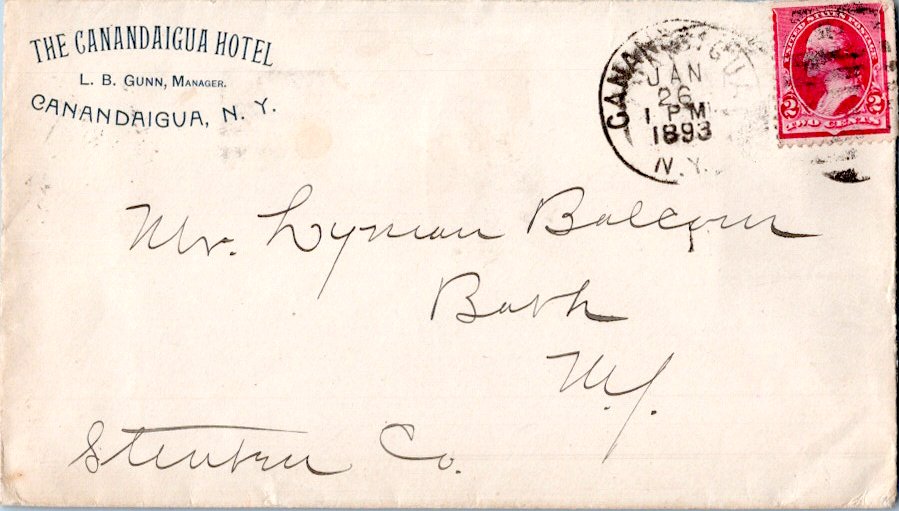 THE CANANDAIGUA HOTEL
L. B. GUNN, MANAGER.
CANANDAIGUA, N. Y.
CANANDAIGUA
JAN
26
1 PM
1893
N.Y.
UNITED STATES POSTAGE
2 2
TWO CENTS
Mr. Lyman Balcom
Bath
N.Y.
Steuben Co.